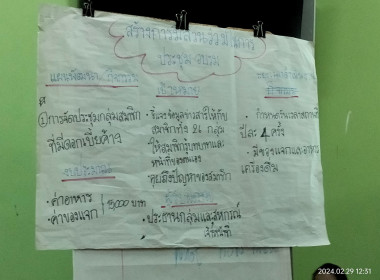 สร้างการมีส่วนร่วมในการ
ประชุม อบรม
แผนพัฒนา กิจกรรม
① การจัดประชุมกลุ่มสมาชิก
ที่มีดอกเบี้ยค้าง
งบประมาณ
• ค่าอาหาร
• ค่าของแจก
5000 บาท
เป้าหมาย
• ชี้แจงข้อมูลข่าวสารให้กับ
สมาชิกทั้ง 26 กลุ่ม
ให้สมาชิกรู้บทบาทและ
หน้าที่ของตนเอง
คุยถึงปัญหาของสมาชิก
• ประธานกลุ่มและสหกรณ์
ปีละ 4 ครั้ง
• มีของแจกและอาหาร
เครื่องดื่ม
2024.02.29 12:31